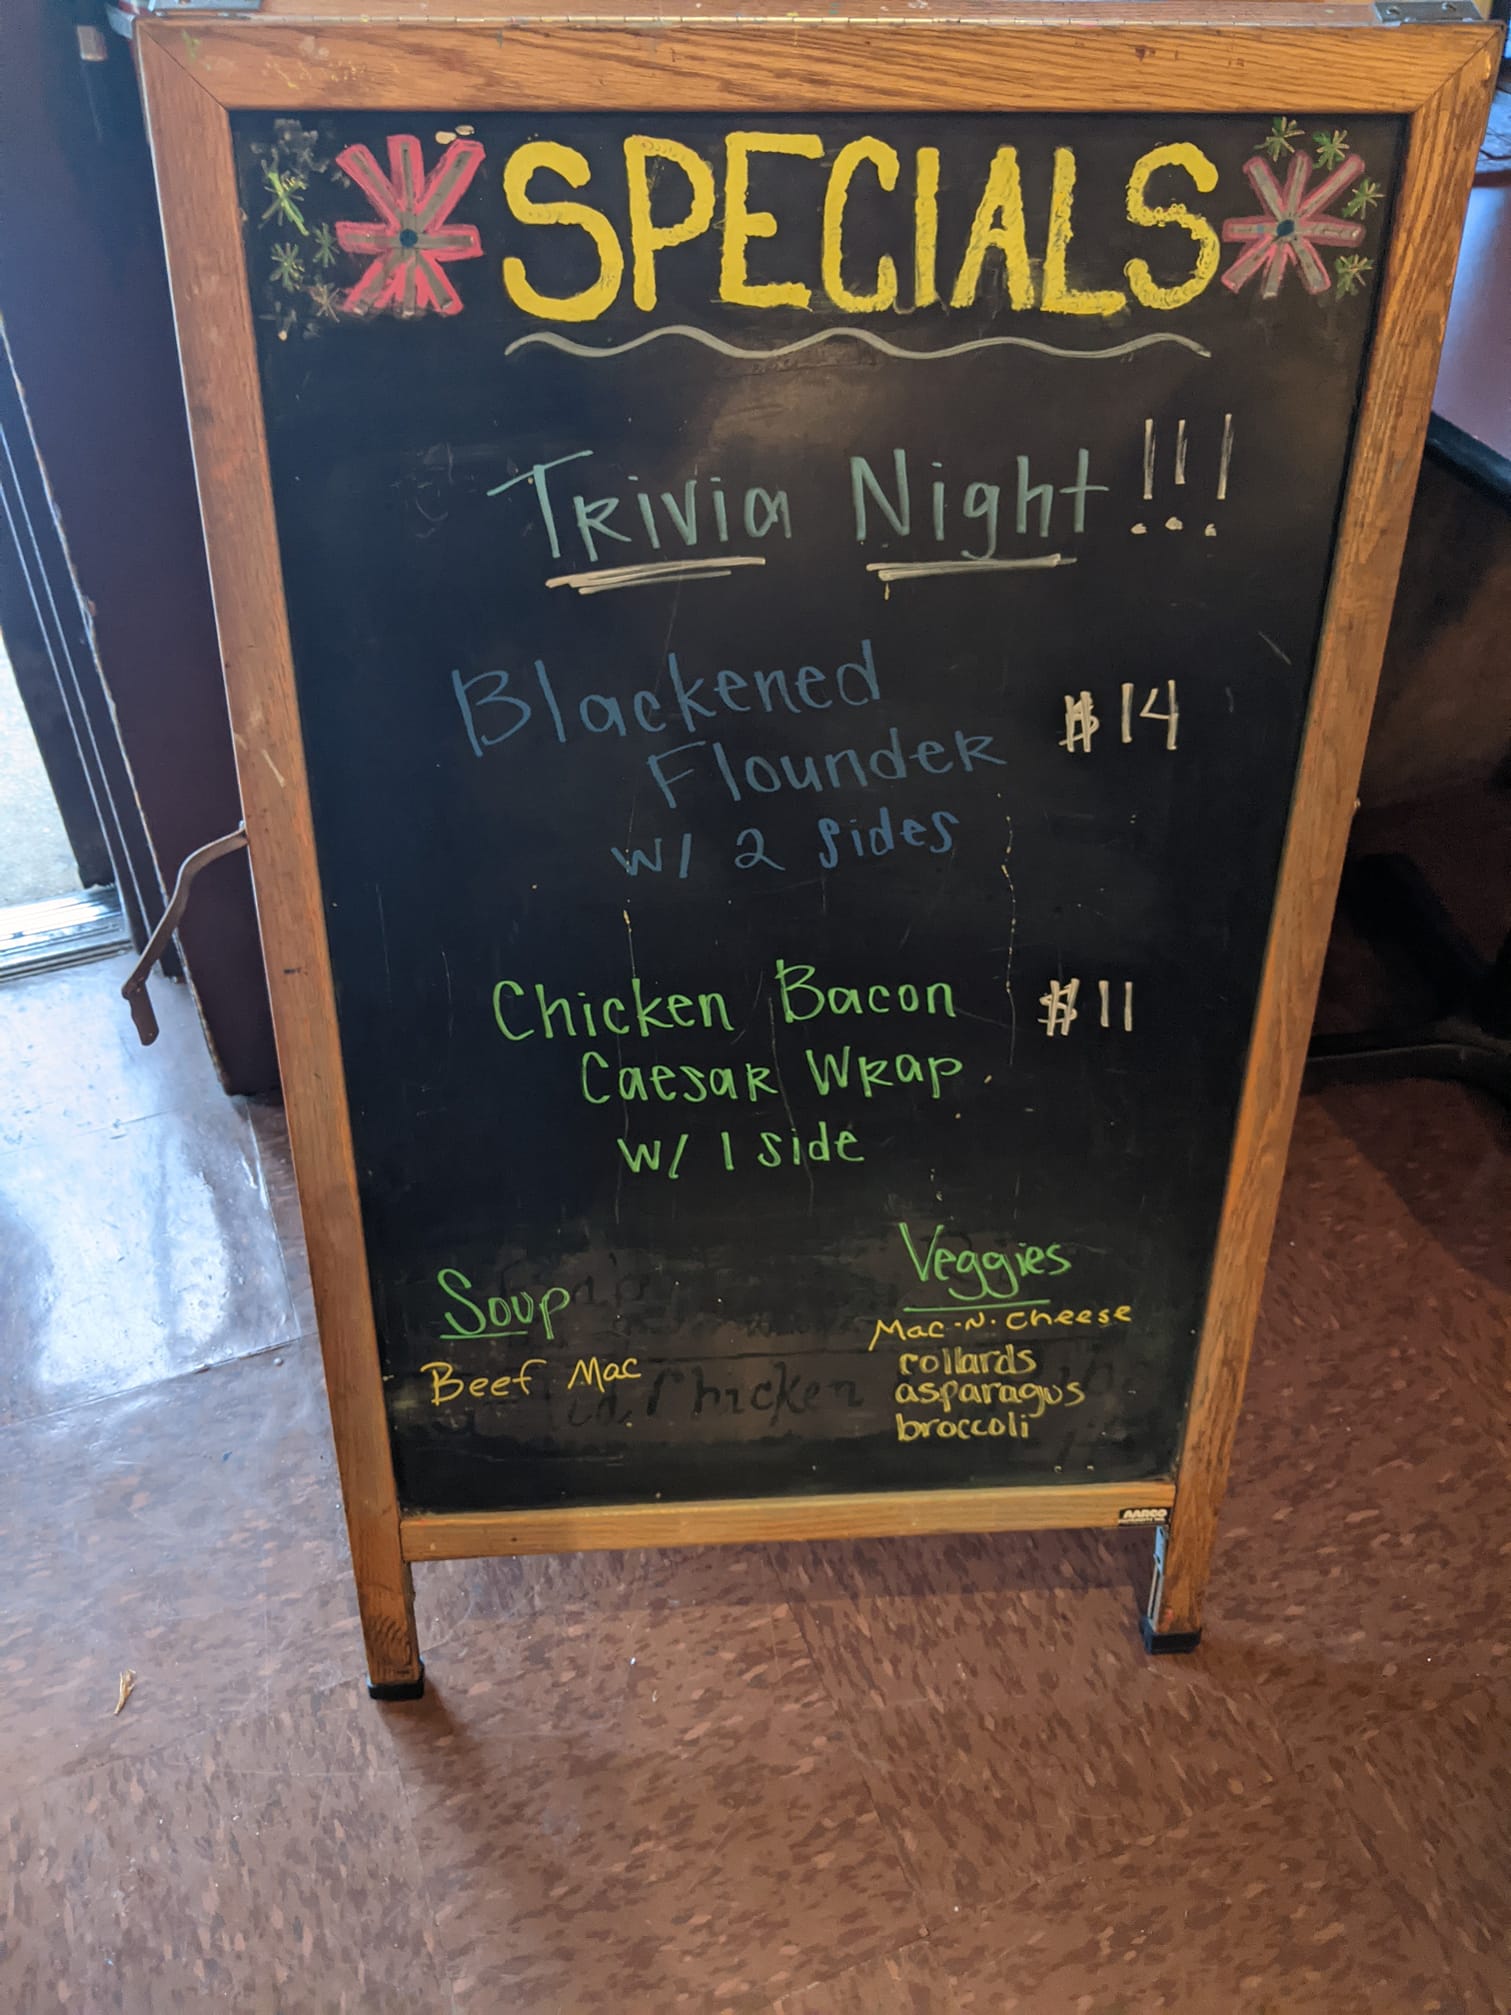 SPECIALS
Trivia Night!!!
Blackened
Flounder $14
w/ 2 sides
Chicken Bacon $11
Caesar Wrap
w/ 1 side
Soup
Beef Mac
Chicken
Veggies
Mac-N-Cheese
collards
asparagus
broccoli
AARCO